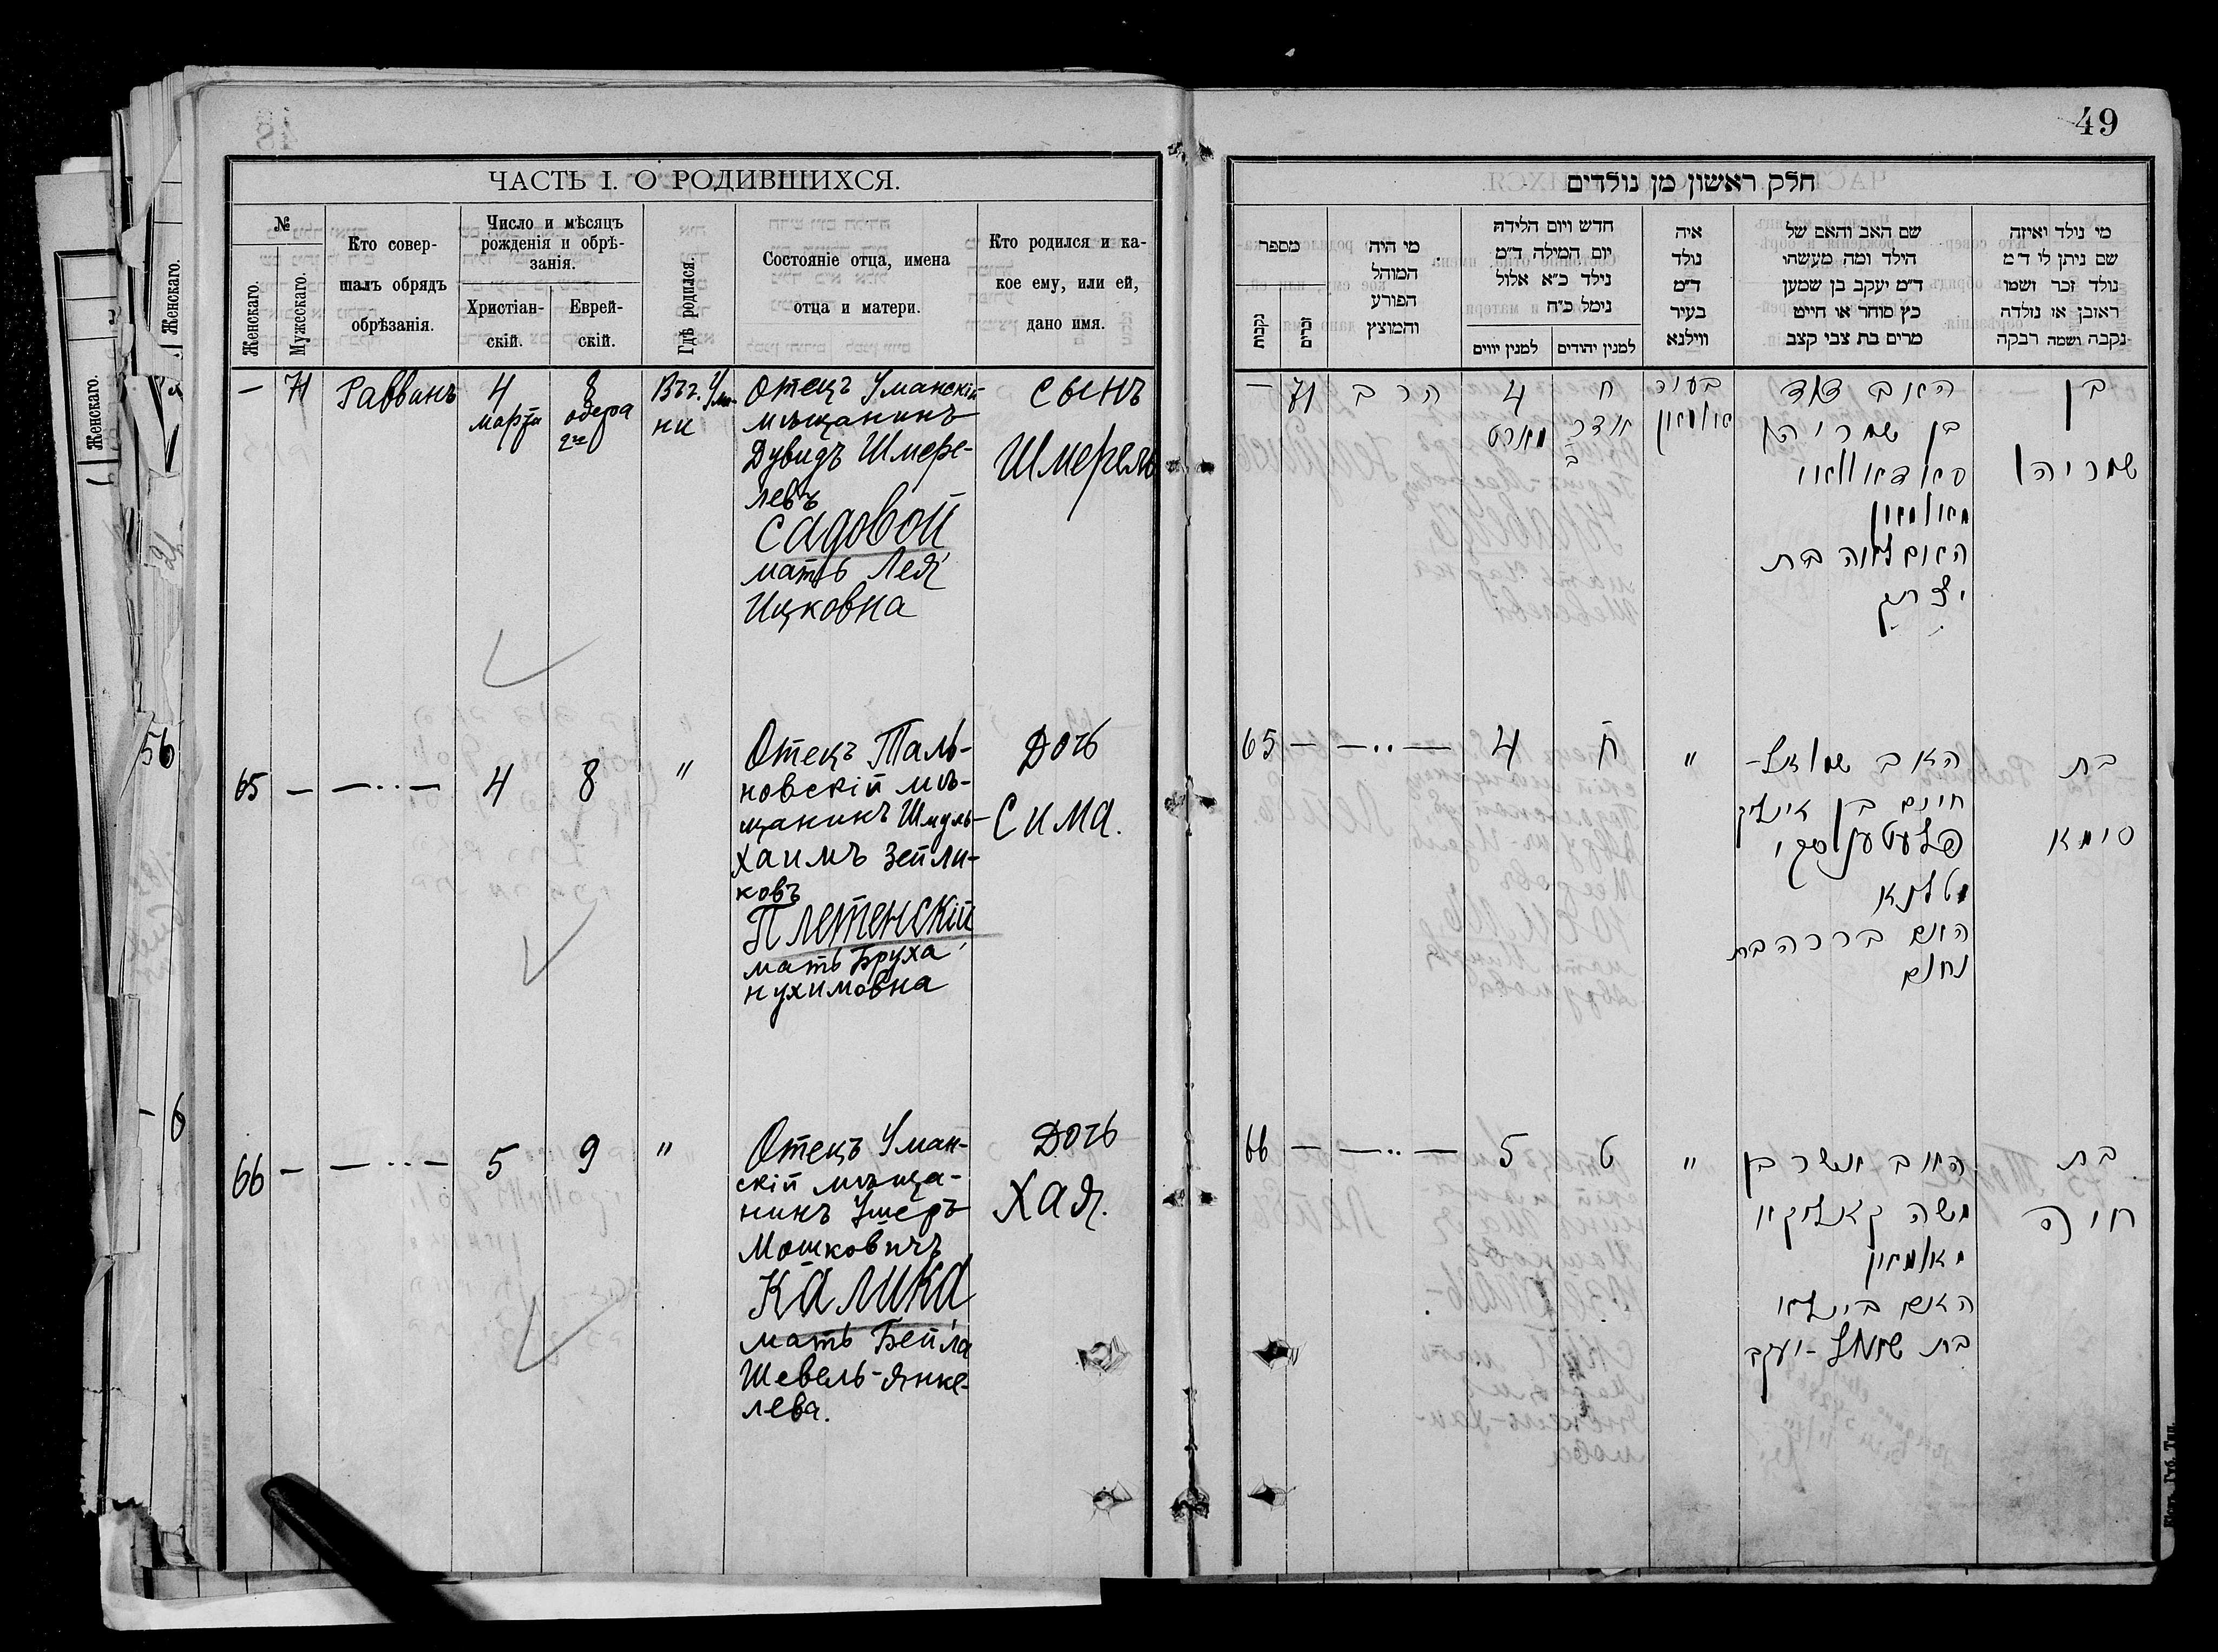 ЧАСТЬ I. О РОДИВШИХСЯ.
№
Женскаго.
Мужескаго.
Кто совер-
шалъ обрядъ
обрѣзанія.
Число и мѣсяцъ
рожденія и обрѣ-
занія.
Христіан-
скій.
Еврей-
скій.
Гдѣ родился.
Состояніе отца, имена
отца и матери.
Кто родился и ка-
кое ему, или ей,
дано имя.
— 71 Раввинъ
4
марта
8
одера
2го
Въ г. Ума-
ни
Отецъ Уманскій
мѣщанинъ
Дувидъ Шмере-
левъ
Садовой
мать Лея
Ицковна
сынъ
Шмерель
65 — — ·· — 4 8 "
Отецъ Таль-
новскій мѣ-
щанинъ Шмуль-
Хаимъ Зейли-
ковъ
Плетенскій
мать Бруха
Нухимовна
Дочь
Сима.
66 — — ·· — 5 9 "
Отецъ Уман-
скій мѣща-
нинъ Ушеръ
Мошковичъ
Калика
мать Бейла
Шевель-Янке-
лева.
Дочь
Хая.
49
חלק ראשון מן נולדים
מספר
נקבות
זכרים
מי היה
המוהל
הפורע
והמוצץ
חדש ויום הלידה
יום המילה ד״מ
נולד כ״א אלול
נימל כ״ח
למנין יווים
למנין יהודים
איה
נולד
ד״מ
בעיר
ווילנא
שם האב והאם של
הילד ומה מעשהו
ד״מ יעקב בן שמען
כץ סוחר או חייט
מרים בת צבי קצב
מי נולד ואיזה
שם ניתן לי ד״מ
נולד זכר ושמו
ראובן או נולדה
נקבה ושמה רבקה
— 71 הרב
4
מארט
ח
אדר
ב
בעיר
אומאן
האב דוד
בן שמריהו
סאדאוואי
מאומאן
האם לאה בת
יצחק
בן
שמריהו
65 — — ·· — 4 ח "
האב שמואל-
חיים בן זיינליק
פלעטענסקי
מטלנא
האם ברכה בת
נחום
בת
סימא
66 — — ·· — 5 ט "
האב אשר בן
משה קאליקא
מאומאן
האם ביילא
בת שמואל-יעקב
בת
חיה